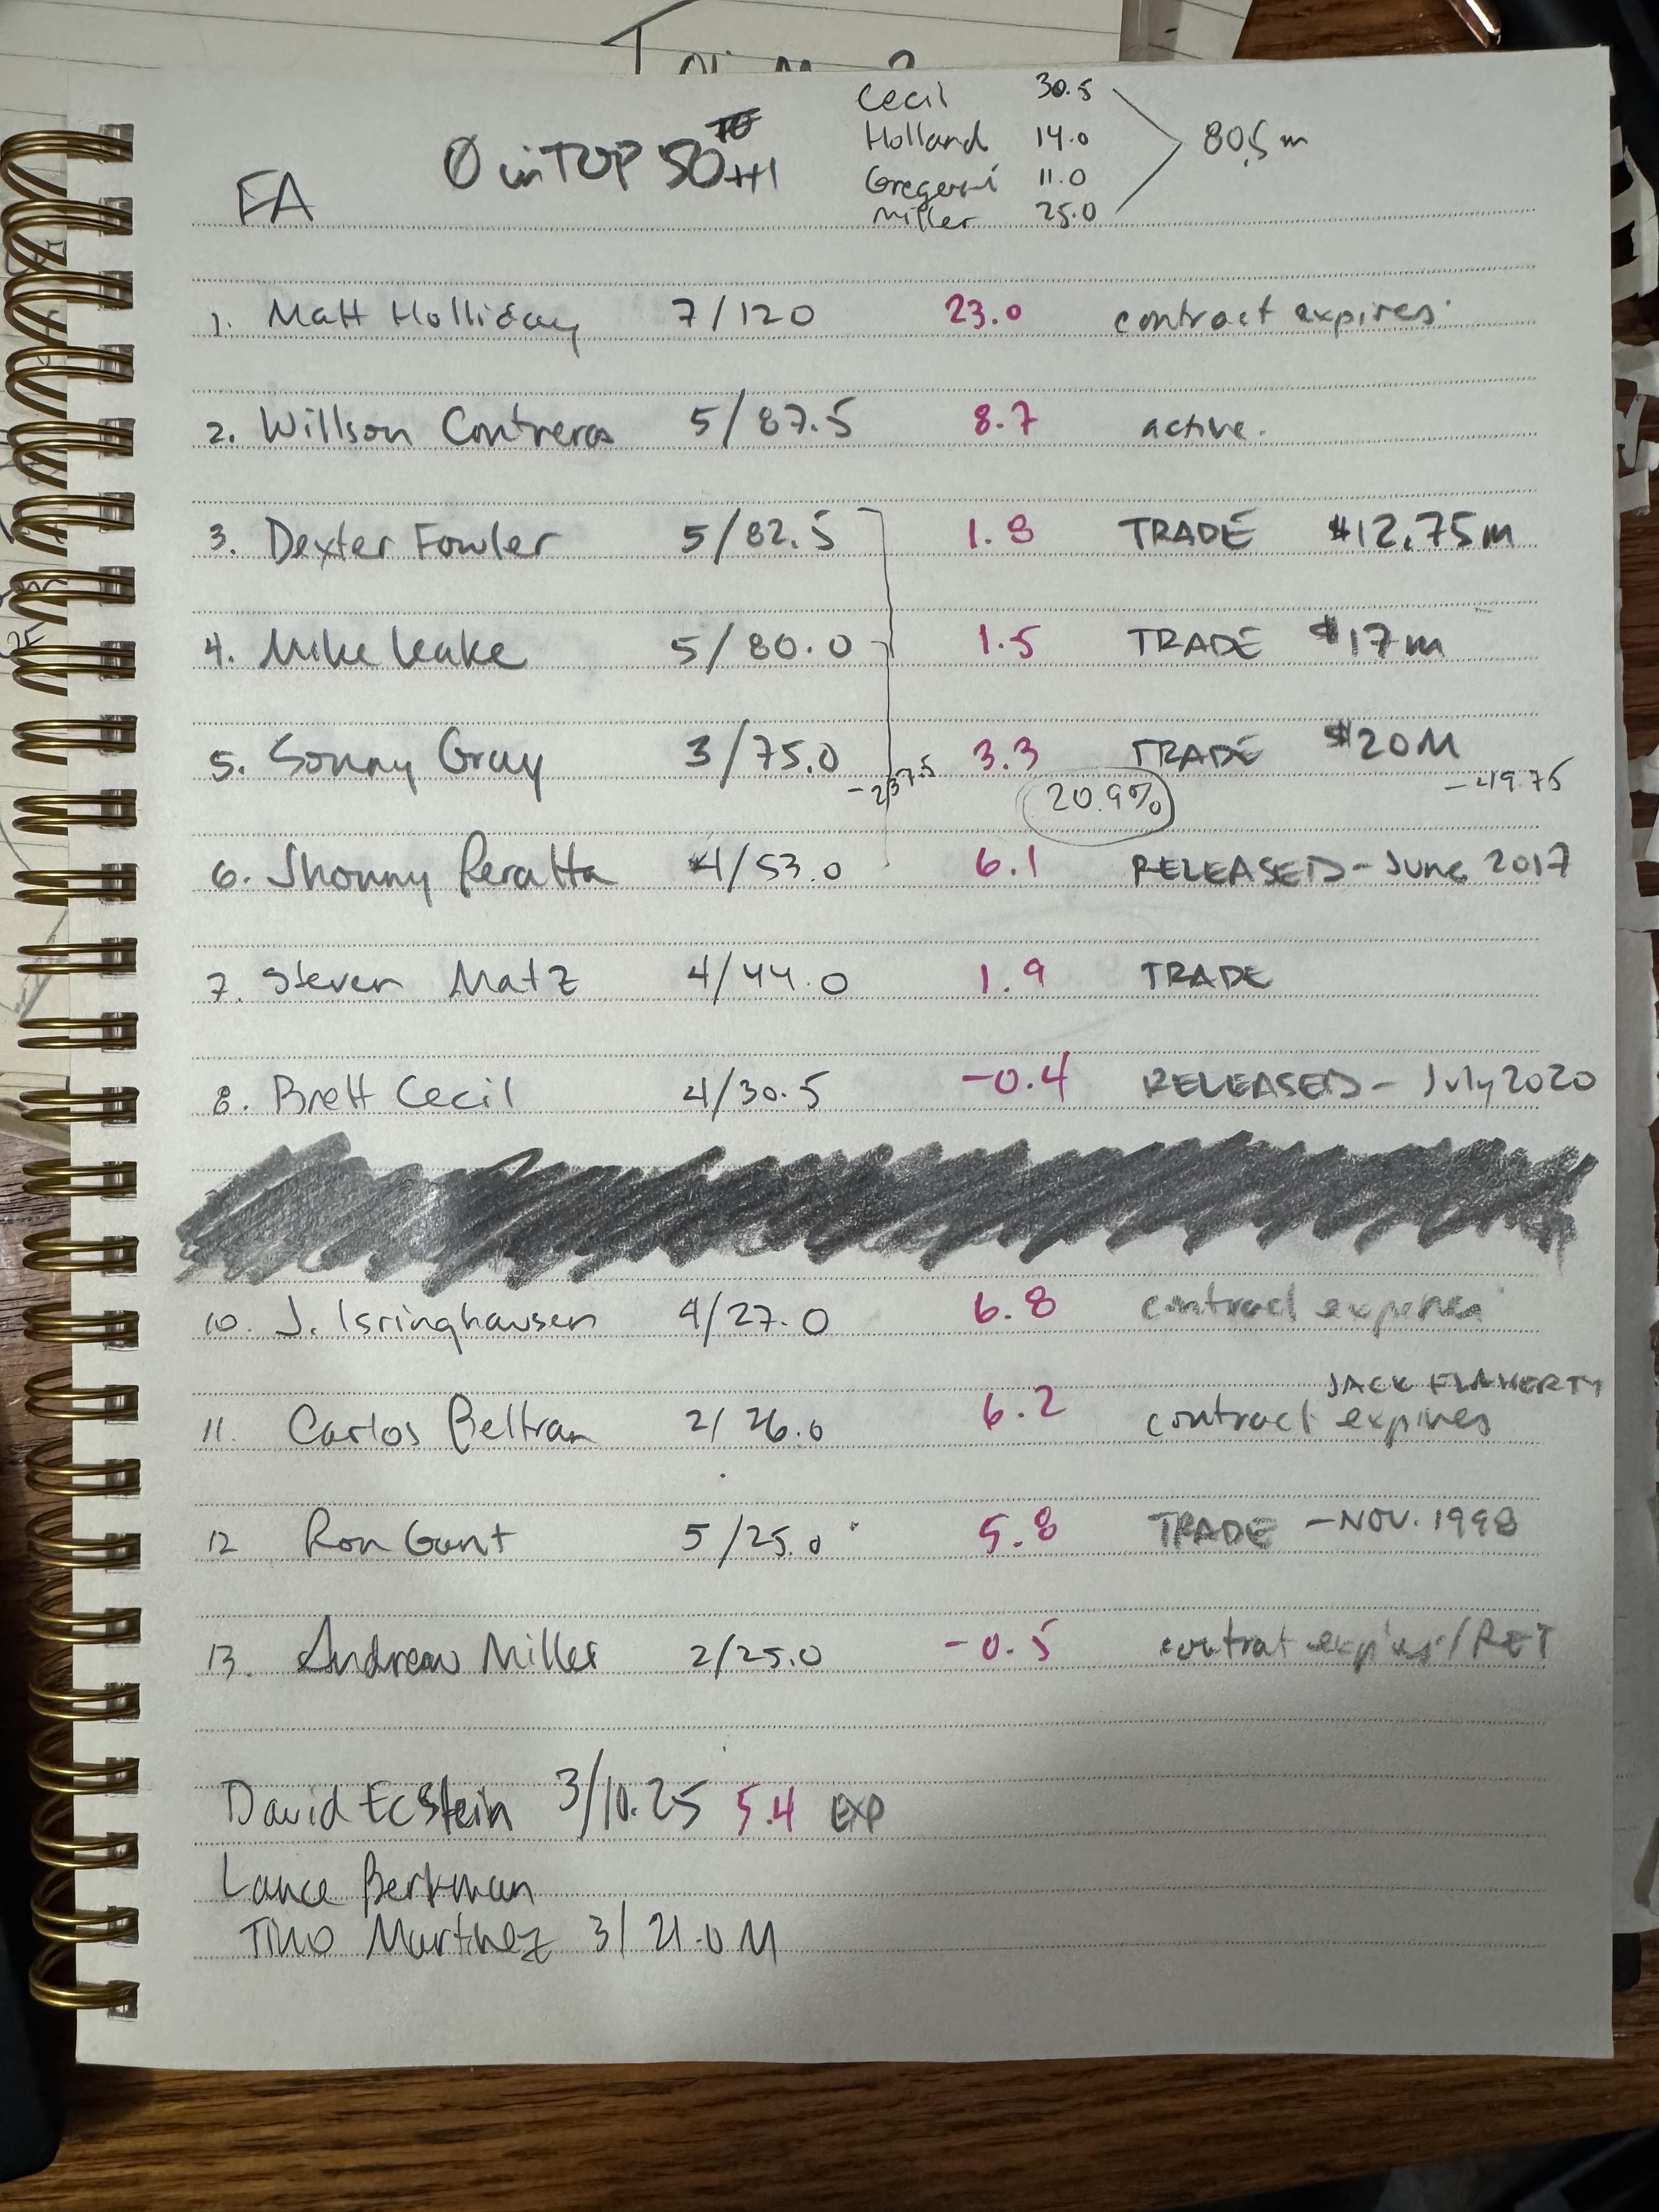 Cecil 30.5
Holland 14.0
Gregerson 11.0
Miller 25.0
80.5m
FA
0 in TOP 50
1. Matt Holliday 7/120 23.0 contract expires
2. Willson Contreras 5/87.5 8.7 active.
3. Dexter Fowler 5/82.5 1.8 TRADE $12.75m
4. Mike Leake 5/80.0 1.5 TRADE $17m
5. Sonny Gray 3/75.0 3.3 TRADE $20M
-237.5 20.9% -49.75
6. Jhonny Peralta 4/53.0 6.1 RELEASED - June 2017
7. Steven Matz 4/44.0 1.9 TRADE
8. Brett Cecil 4/30.5 -0.4 RELEASED - July 2020
10. J. Isringhausen 4/27.0 6.8 contract expires
JACK FLAHERTY
11. Carlos Beltran 2/26.0 6.2 contract expires
12 Ron Gant 5/25.0 5.8 TRADE - NOV. 1998
13. Andrew Miller 2/25.0 -0.5 contrat expires/RET
David Eckstein 3/10.25 5.4 EXP
Lance Berkman
Tino Martinez 3/21.0 M